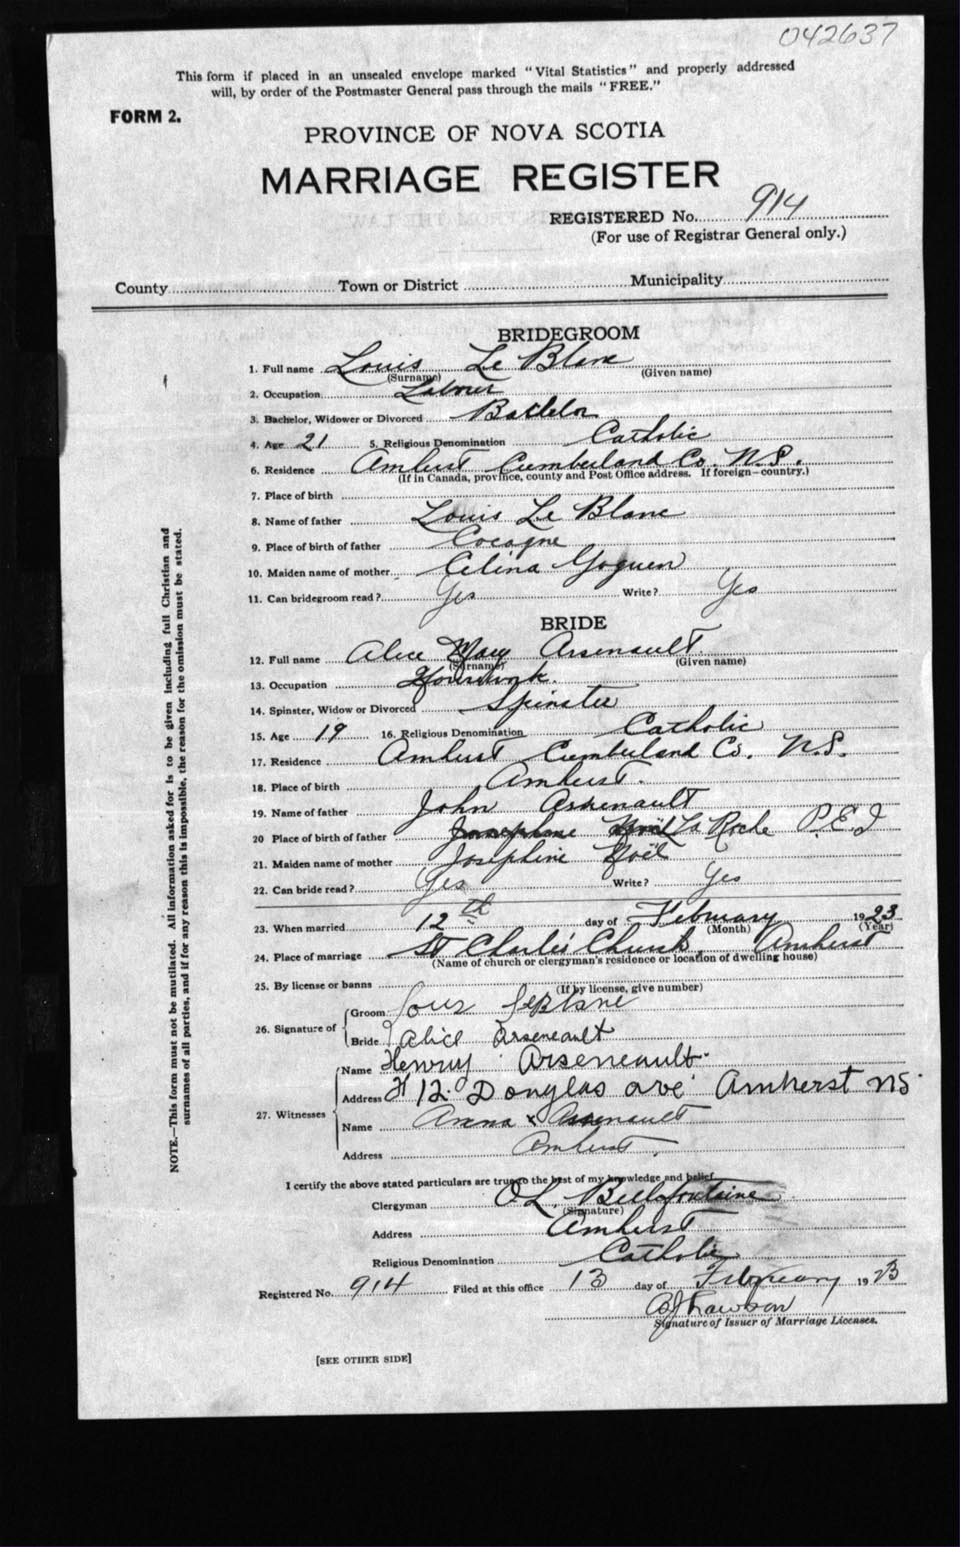 042637
This form if placed in an unsealed envelope marked "Vital Statistics" and properly addressed
will, by order of the Postmaster General pass through the mails "FREE."
FORM 2.
PROVINCE OF NOVA SCOTIA
MARRIAGE REGISTER
REGISTERED No. 914
(For use of Registrar General only.)
County Town or District Municipality
BRIDEGROOM
1. Full name Louis Le Blanc
(Surname) (Given name)
2. Occupation Labourer
3. Bachelor, Widower or Divorced Bachelor
4. Age 21 5. Religious Denomination Catholic
6. Residence Amherst Cumberland Co. N.S.
(If in Canada, province, county and Post Office address. If foreign—country.)
7. Place of birth
8. Name of father Louis Le Blanc
9. Place of birth of father Cocagne
10. Maiden name of mother Celina Goguen
11. Can bridegroom read? Yes Write? Yes
BRIDE
12. Full name Alice Mary Arsenault
(Surname) (Given name)
13. Occupation Housework.
14. Spinster, Widow or Divorced Spinster
15. Age 19 16. Religious Denomination Catholic
17. Residence Amherst Cumberland Co. N.S.
18. Place of birth Amherst.
19. Name of father John Arsenault
20 Place of birth of father La Roche P.E.I
21. Maiden name of mother Josephine Noël
22. Can bride read? Yes Write? Yes
23. When married 12th day of February 1923
(Month) (Year)
24. Place of marriage St Charles Church, Amherst
(Name of church or clergyman's residence or location of dwelling house)
25. By license or banns
(If by license, give number)
26. Signature of Groom
Bride Alice Arseneault
27. Witnesses Name Henry Arseneault
Address 12 Douglas ave Amherst NS
Name Anna Arsenault
Address Amherst.
I certify the above stated particulars are true to the best of my knowledge and belief
Clergyman O L. Bellefontaine
(Signature)
Address Amherst
Religious Denomination Catholic
Registered No. 914 Filed at this office 13 day of February 1923
Signature of Issuer of Marriage Licenses.
[SEE OTHER SIDE]
NOTE.—This form must not be mutilated. All information asked for is to be given including full Christian and
surnames of all parties, and if for any reason this is impossible, the reason for the omission must be stated.